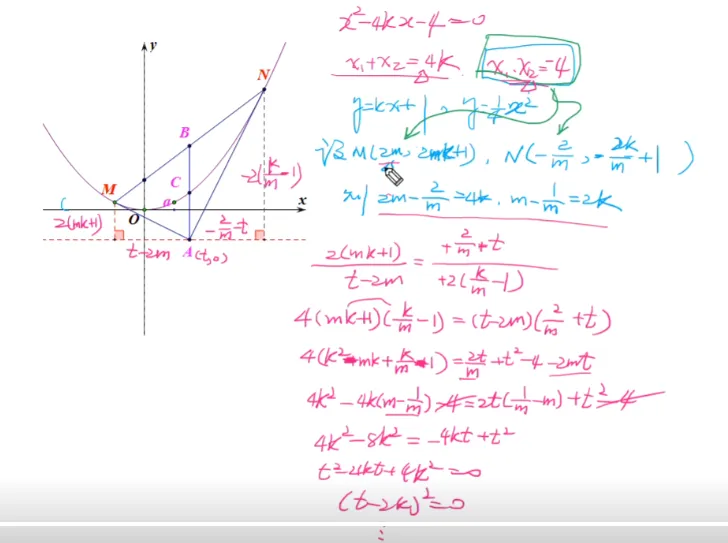 x²-4kx-4=0
x₁+x₂=4k x₁·x₂=-4
y=kx+1 y=¼x²
设M(2m, 2mk+1), N(-2/m, -2k/m+1)
则 2m-2/m=4k, m-1/m=2k
2(mk+1)/(t-2m)=(+2/m+t)/(+2(k/m-1))
4(mk+1)(k/m-1)=(t-2m)(2/m+t)
4(k²-mk+k/m-1)=2t/m+t²-4-2mt
4k²-4k(m-1/m)-4=2t(1/m-m)+t²-4
4k²-8k²=-4kt+t²
t²-4kt+4k²=0
(t-2k)²=0
y
N
B
-2(k/m-1)
C
M
a
x
O
2(mk+1)
-2/m-t
t-2m
A(t,0)